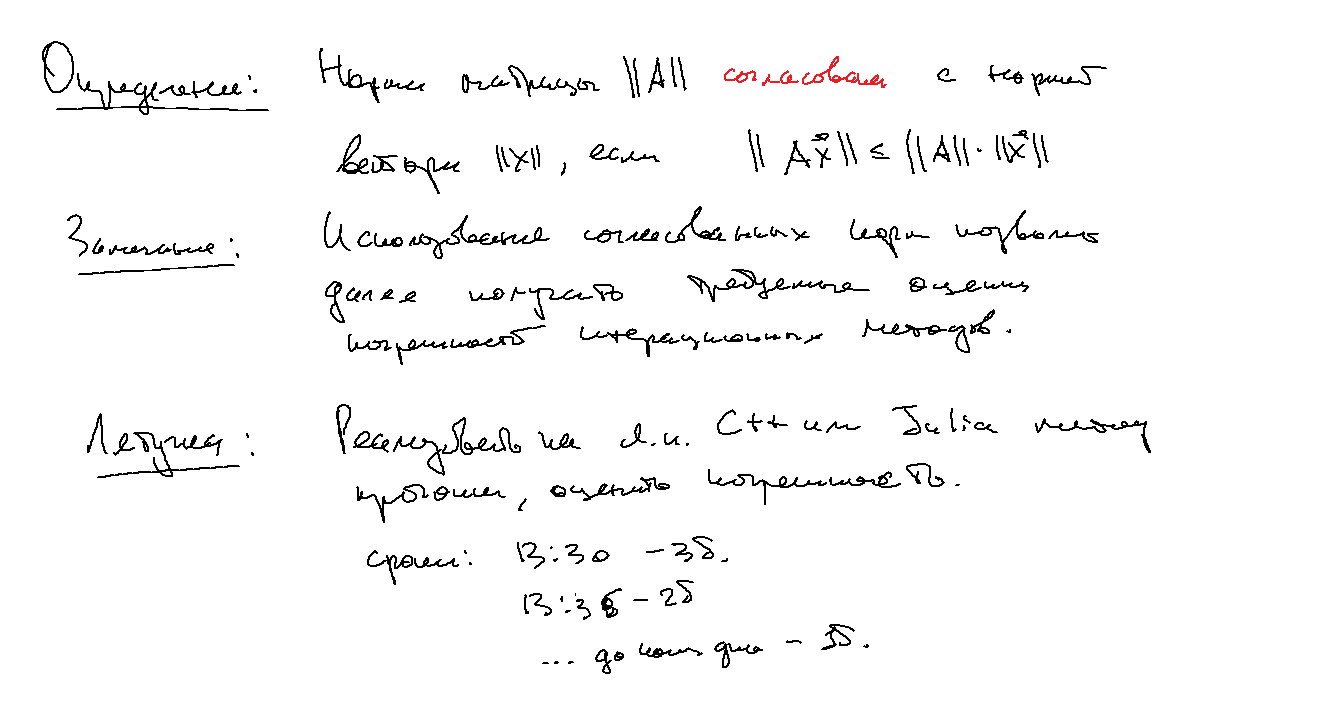 Определение: Норма матрицы ||A|| согласована с нормой
вектора ||X||, если ||Ax⃗|| ≤ ||A||·||x⃗||
Замечание: Использование согласованных норм позволит
далее получать требуемые оценки
погрешности итерационных методов.
Летучка: Реализовать на я.п. C++ или Julia метод
прогонки, оценить погрешность.
сроки: 13:30 – 3б.
– 2б
... до конца дня –